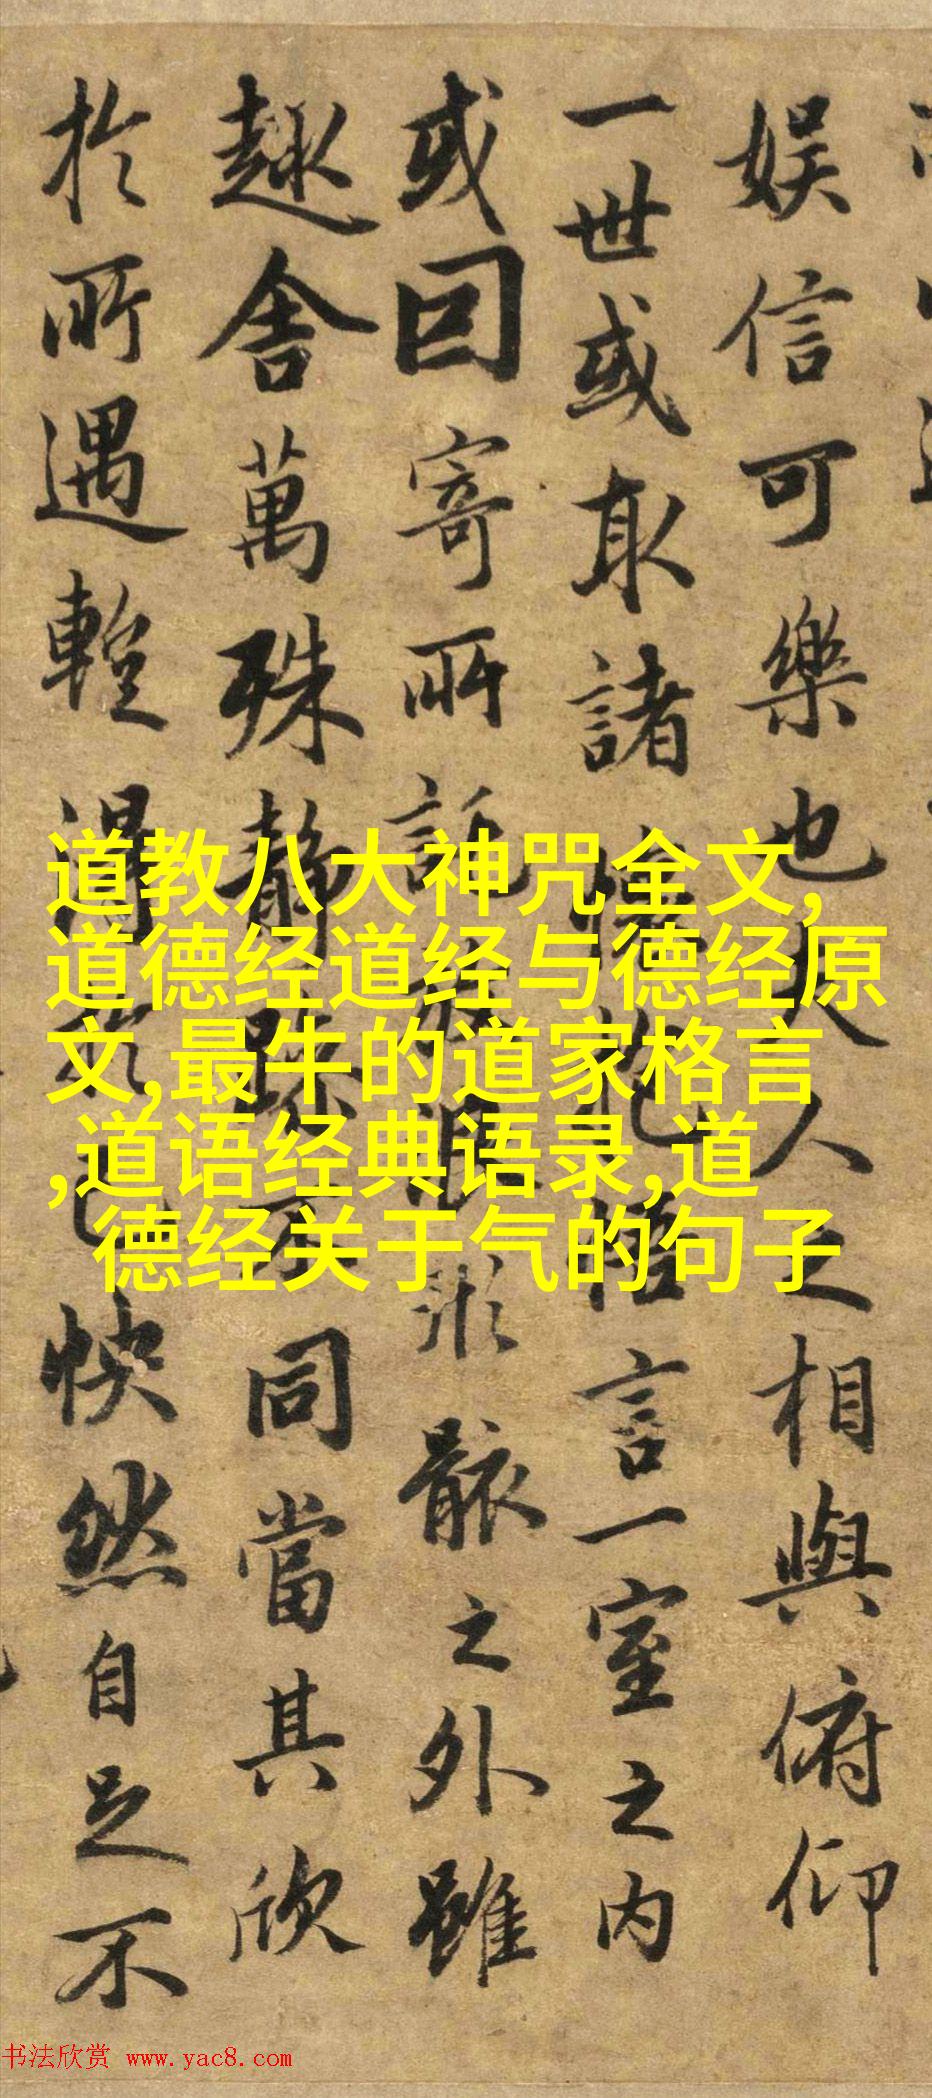 娱信可樂也夫人之相與俯仰
一世或取諸懷抱悟言一室之内
或因寄所託放浪形骸之外雖
趣舍萬殊静躁不同當其欣
於所遇蹔得於己怏然自足不
道教八大神咒全文,
道德经道经与德经原
文,最牛的道家格言
,道语经典语录,道
德经关于气的句子
书法欣赏 www.yac8.com